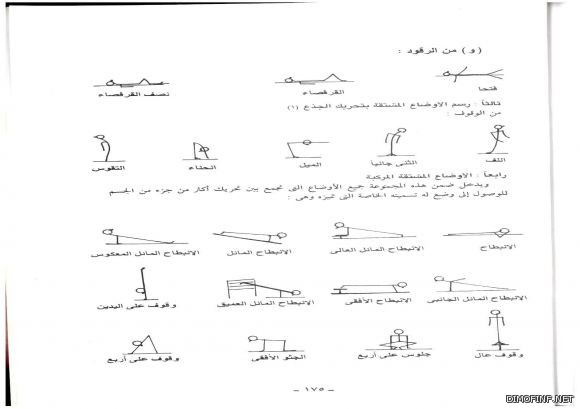 (و) من الرقود :
فتحا القرفصاء نصف القرفصاء
ثالثاً : رسم الاوضاع المشتقة بتحريك الجذع (١)
من الوقوف :
اللف الثنى جانبا الميل انحناء التقوس
رابعاً : الاوضاع المشتقة المركبة
ويدخل ضمن هذه المجموعة جميع الأوضاع التى تجمع بين تحريك أكثر من جزء من الجسم
للوصول إلى وضع له تسميته الخاصة التى تميزه وهى :
الانبطاح الانبطاح المائل العالى الانبطاح المائل الانبطاح المائل المعكوس
الانبطاح المائل الجانبى الانبطاح الأفقى الانبطاح المائل العميق وقوف على اليدين
وقوف عال جلوس على أربع الجثو الأفقى وقوف على أربع
– ١٧٥ –
DIMOFINF.NET